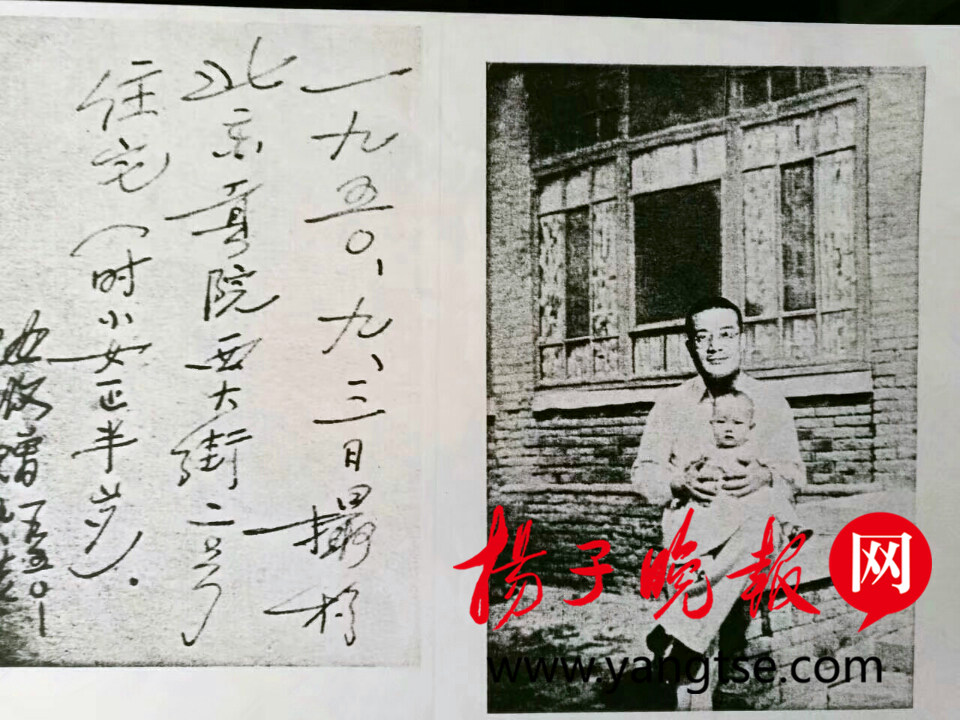 一九五〇、九、三日摄於
北京贡院西大街二号
住宅（时小女正半岁）.
扬子晚报网
www.yangtse.com